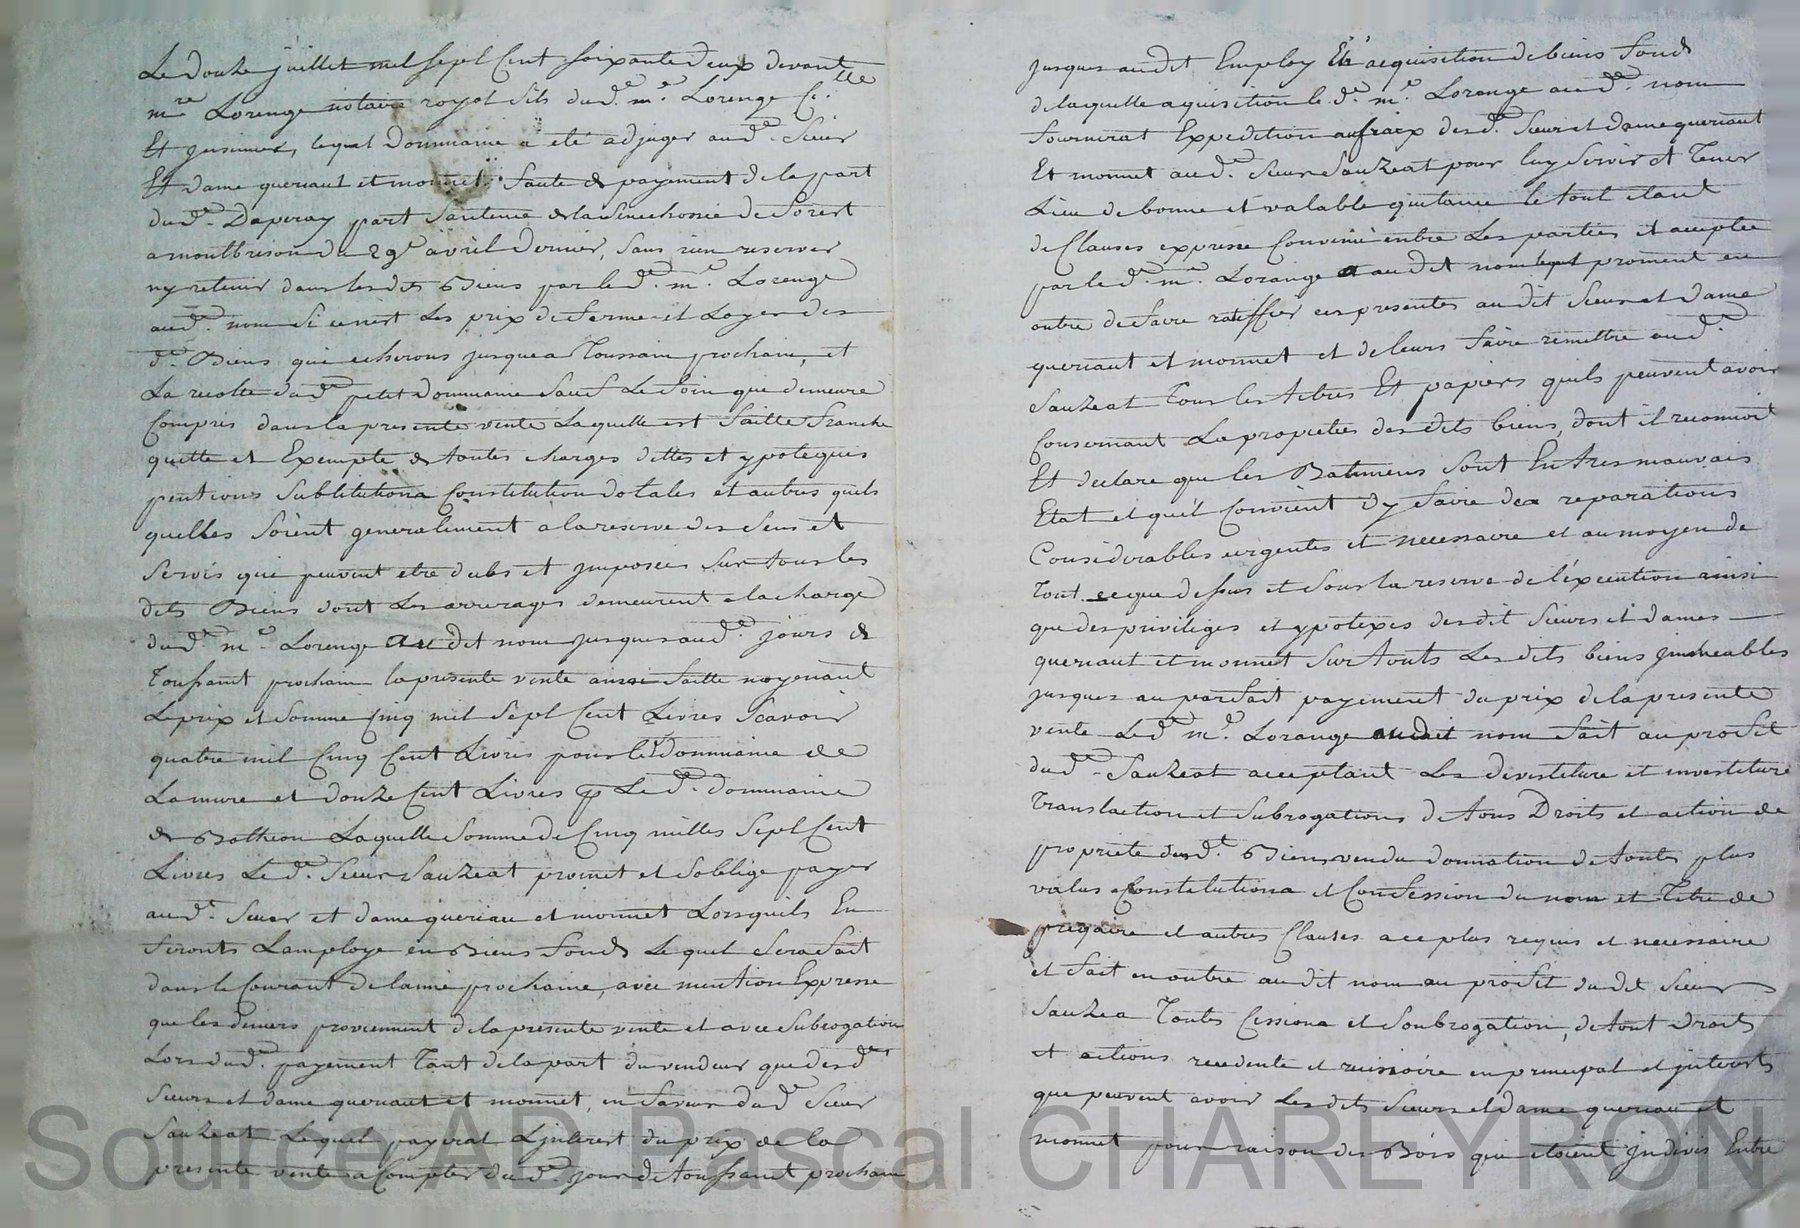 Le douze juillet mil sept Cent soixante deux devant
mre Lorenge notaire royal fils du d.e m.e Lorenge
Et gerinier, lequel Dommaine a eté adjuger au d.e Sieur
Et dame queriaut et monnet faute de payement de la part
du d.e Daperay part Santence de la Senechossée de forest
a montbrison du 29e avril dernier, Sans rien reserver
ny retenir dans les dits Biens par le d.e m.e Lorenge
au d.e nom Si ce nest Les prix de ferme et Loyer des
d.e Biens qui echerons jusque a Toussain prochain, et
La recolte du d.e petit dommaine Sauf Le foin que demeure
Compris dans la presente vente Laquelle est faitte franche
quitte et Exempte de toutes charges dettes et ypoteques
pentions Substitutions Constitution dotales et autres quels
quelles soient generalement a la reserve des Sens et
Servis qui peuvent etre dubs et jmposés Sur tous les
dits Biens dont Les arrerages demeurent a la charge
du d.e m.e Lorenge au dit nom jusques au d.e jours de
Toussaint prochain la presente vente aussi faitte moyenant
Le prix et Somme Cinq mil Sept Cent Livres Scavoir
quatre mil Cinq Cent Livres pour le d.e Dommaine de
Lamure et douze Cent Livres p Le d.e dommaine
de Batheon Laquelle Somme de Cinq milles Sept Cent
Livres Le d.e Sieur Sauzeat promet et Soblige payer
au d.e Sieur et dame queriau et monnet Lorsquils En
feronts Lamploye en Biens fonds Le quel Sera fait
dans le Courant de lannée prochaine, avec mention Expresse
que les deniers proviennent de la presente vente et avec Subrogation
Lors du d.e payement Tant de la part du vendeur que des d.e
Sieurs et dame queriaut et monnet, en faveur du d.e Sieur
Sauzeat Lequel payerat Ljnterest du prix de la
presente vente a Compter du d.e jour de toussaint prochain
jusques au dit Employ Et acquisition de biens fonds
de laquelle aquisition le d.e m.e Lorenge au d.e nom
fournirat Expedition au fraix des d.e Sieur et dame queriaut
Et monnet au d.e Sieur Sauzeat pour luy Servir et Tenir
Lieu de bonne et valable quitance le tout etant
de Clauses expresse Convenue entre Les parties et aceptée
par le d.e m.e Lorange au dit nom lequel proment en
outre de faire ratiffier ces presentes au dit Sieur et Dame
queriaut et monnet et de leurs faire remettre au d.e
Sauzeat Tous les titres Et papiers quils peuvent avoir
Consernant La proprietée des dits biens, dont il reconnoit
Et declare que les Batimens Sont En tres mauvais
Etat et qu'il Convient d'y faire des reparations
Considerables urgentes et necessaire et au moyen de
Tout ce que dessus et Sous la reserve de l'éxecution ainsi
que des priviliges et ypoteques des dit Sieurs et dames
queriaut et monnet Sur touts Les dits biens jmmeables
jusques au parfait payement du prix de la presente
vente Le d.e m.e Lorange audit nom fait au profit
du d.e Sauzeat acceptant Les devestiture et investiture
Translaction et Subrogations de tous Droits et action de
proprieté des d.e Biens vendu donnation de toutes plus
values Constitutions et Confession du nom et Titre de
preqaire et autres Clauses a ce plus requis et necessaire
et fait en outre au dit nom au profit du dit Sieur
Sauzea Toutes Cessions et Soubrogation, de tout droits
et actions recedente et recisoire en principal et jnterets
que peuvent avoir Les dits Sieurs et dame queriau et
monnet pour raison des Bois qui etoient jndivis Entre
Source AD Pascal CHAREYRON